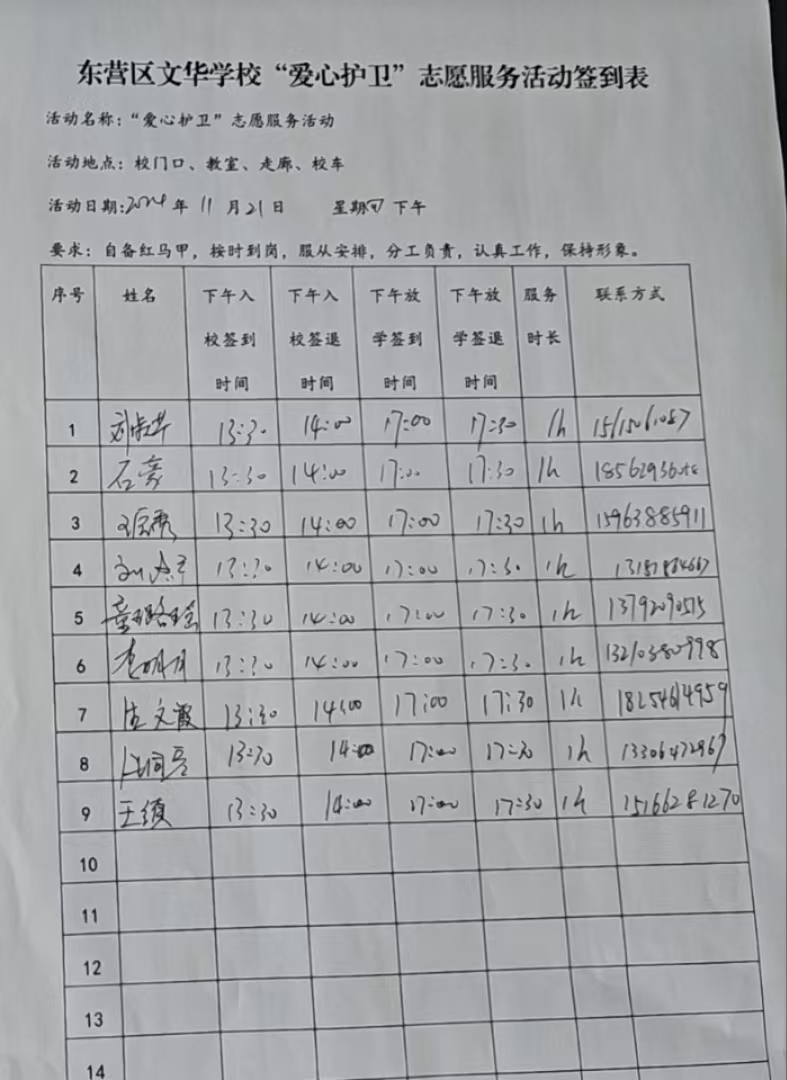 东营区文华学校“爱心护卫”志愿服务活动签到表
活动名称：“爱心护卫”志愿服务活动
活动地点：校门口、教室、走廊、校车
活动日期:2024年 11月21日 星期四 下午
要求：自备红马甲，按时到岗，服从安排，分工负责，认真工作，保持形象。
序号 姓名 下午入校签到时间 下午入校签退时间 下午放学签到时间 下午放学签退时间 服务时长 联系方式
1 13:30 14:00 17:00 17:30 1h
2 13:30 14:00 17:00 17:30 1h
3 13:30 14:00 17:00 17:30 1h 15963885911
4 13:30 14:00 17:00 17:30 1h
5 13:30 14:00 17:00 17:30 1h
6 李明月 13:30 14:00 17:00 17:30 1h 13210380998
7 13:30 14:00 17:00 17:30 1h 18254614959
8 13:30 14:00 17:00 17:30 1h 13306472967
9 王颂 13:30 14:00 17:00 17:30 1h 15166281270
10
11
12
13
14